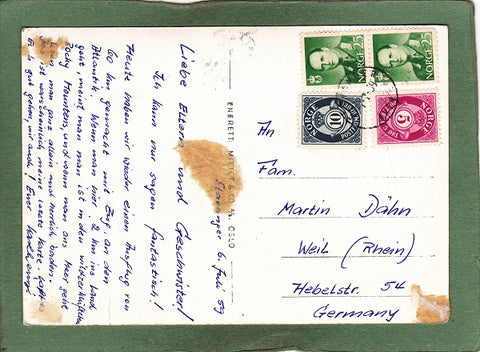 Stavanger 6. Juli 59
Liebe Eltern und Geschwister!
Ich kann nur sagen fantastisch!
Heute haben wir wieder einen Ausflug von
60 km gemacht mit Zug, an den
Atlantik. Wenn man hier 2 km ins Land
geht, meint man man ist in den wildzerklüfteten
Rocky Mountens, und wenn man ans Meer geht
kann man ganz allein und herrlich baden.
Das ist warscheinlich meine letzte Karte.
Euch gut gehen, mir auch! Euer
MITTET & CO. A/S, OSLO
NORGE 25
NORGE 25
NORGE 10
NORGE 5
An
Fam.
Martin Dähn
Weil (Rhein)
Hebelstr. 54
Germany